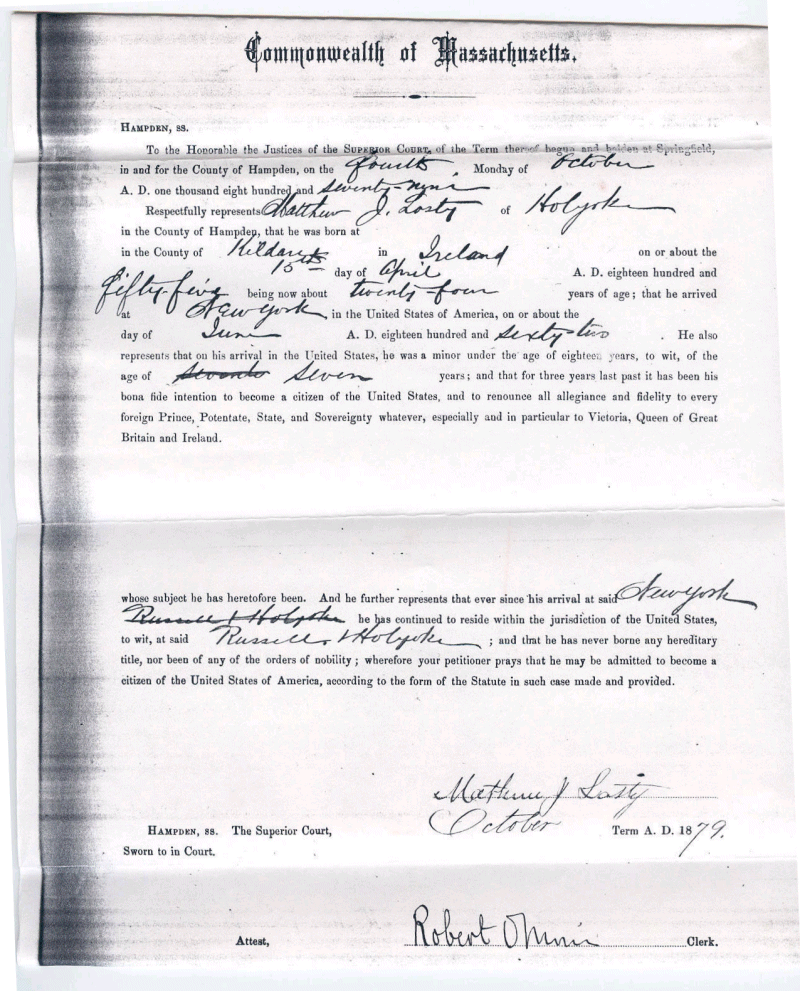 Commonwealth of Massachusetts.
HAMPDEN, SS.
To the Honorable the Justices of the SUPERIOR COURT, of the Term thereof begun and holden at Springfield,
in and for the County of Hampden, on the fourth Monday of October
A. D. one thousand eight hundred and seventy-nine
Respectfully represents Matthew J. Losty of Holyoke
in the County of Hampden, that he was born at
in the County of Kildare in Ireland on or about the
15th day of April A. D. eighteen hundred and
fifty-five being now about twenty-four years of age; that he arrived
at New York in the United States of America, on or about the
day of June A. D. eighteen hundred and sixty two . He also
represents that on his arrival in the United States, he was a minor under the age of eighteen years, to wit, of the
age of seven years; and that for three years last past it has been his
bona fide intention to become a citizen of the United States, and to renounce all allegiance and fidelity to every
foreign Prince, Potentate, State, and Sovereignty whatever, especially and in particular to Victoria, Queen of Great
Britain and Ireland.
whose subject he has heretofore been. And he further represents that ever since his arrival at said New York
Russell & Holyoke he has continued to reside within the jurisdiction of the United States,
to wit, at said Russell & Holyoke ; and that he has never borne any hereditary
title, nor been of any of the orders of nobility; wherefore your petitioner prays that he may be admitted to become a
citizen of the United States of America, according to the form of the Statute in such case made and provided.
Matthew J Losty
HAMPDEN, SS. The Superior Court, October Term A. D. 1879.
Sworn to in Court.
Attest, Robert O Morris Clerk.